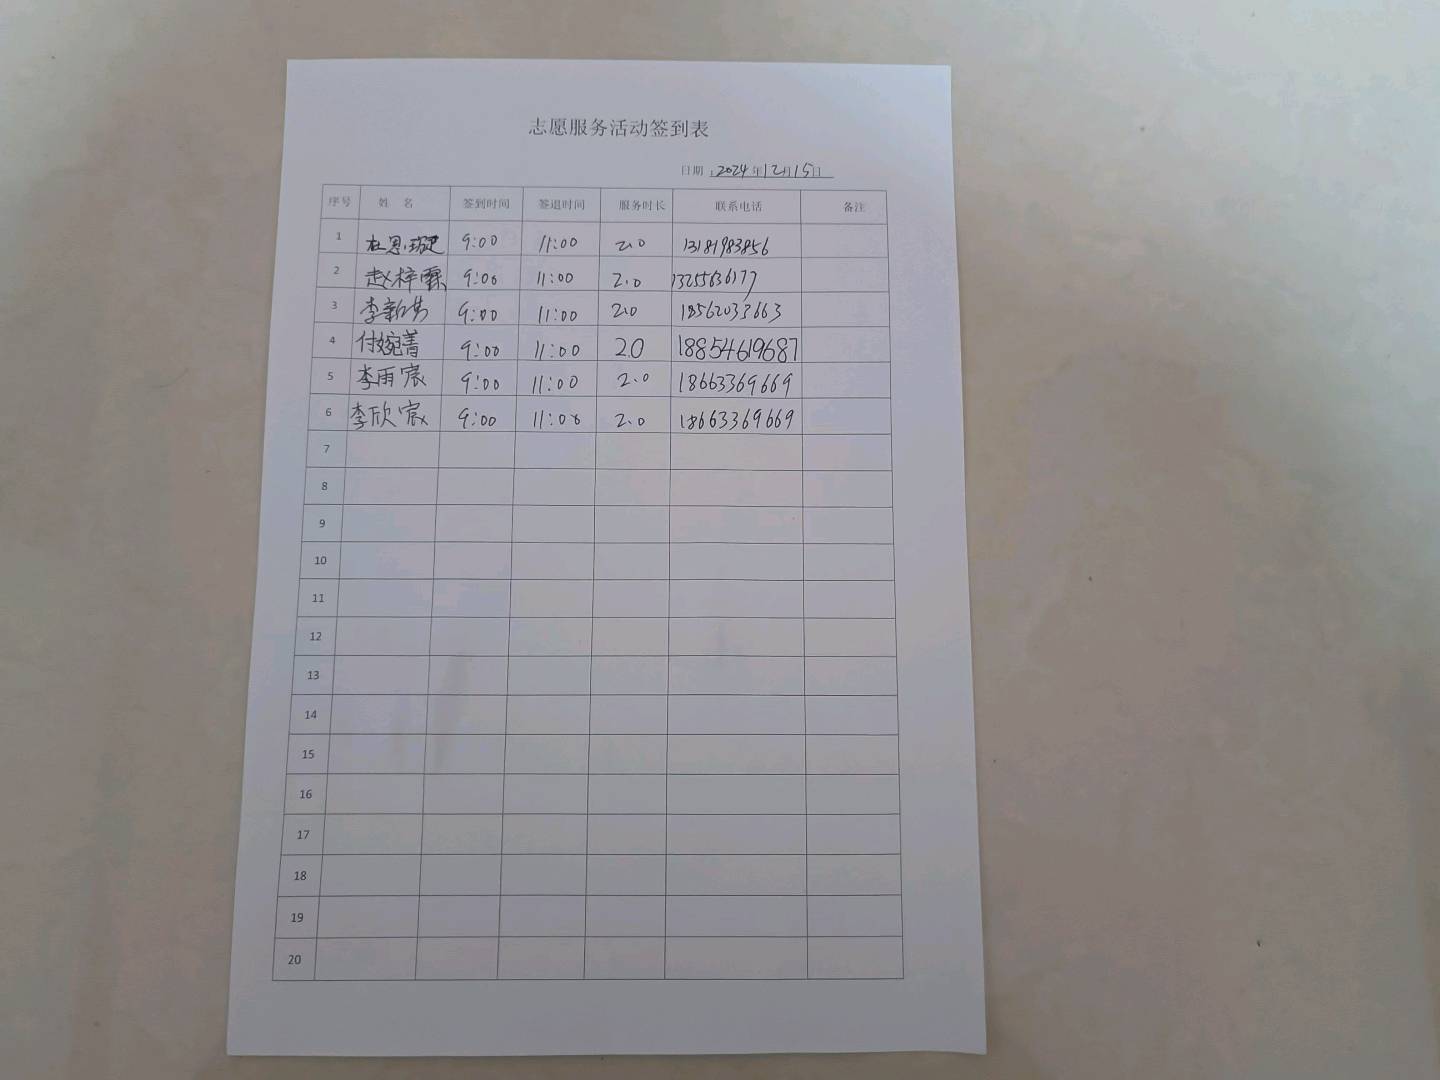 志愿服务活动签到表
日期：2024年12月15日
序号 姓 名 签到时间 签退时间 服务时长 联系电话 备注
1 杜恩璇 9:00 11:00 2.0 13181983856
2 赵梓霖 9:00 11:00 2.0 13255636177
3 李新 9:00 11:00 2.0 18562033663
4 付婉菁 9:00 11:00 2.0 18854619687
5 李雨宸 9:00 11:00 2.0 18663369669
6 李欣宸 9:00 11:00 2.0 18663369669
7
8
9
10
11
12
13
14
15
16
17
18
19
20